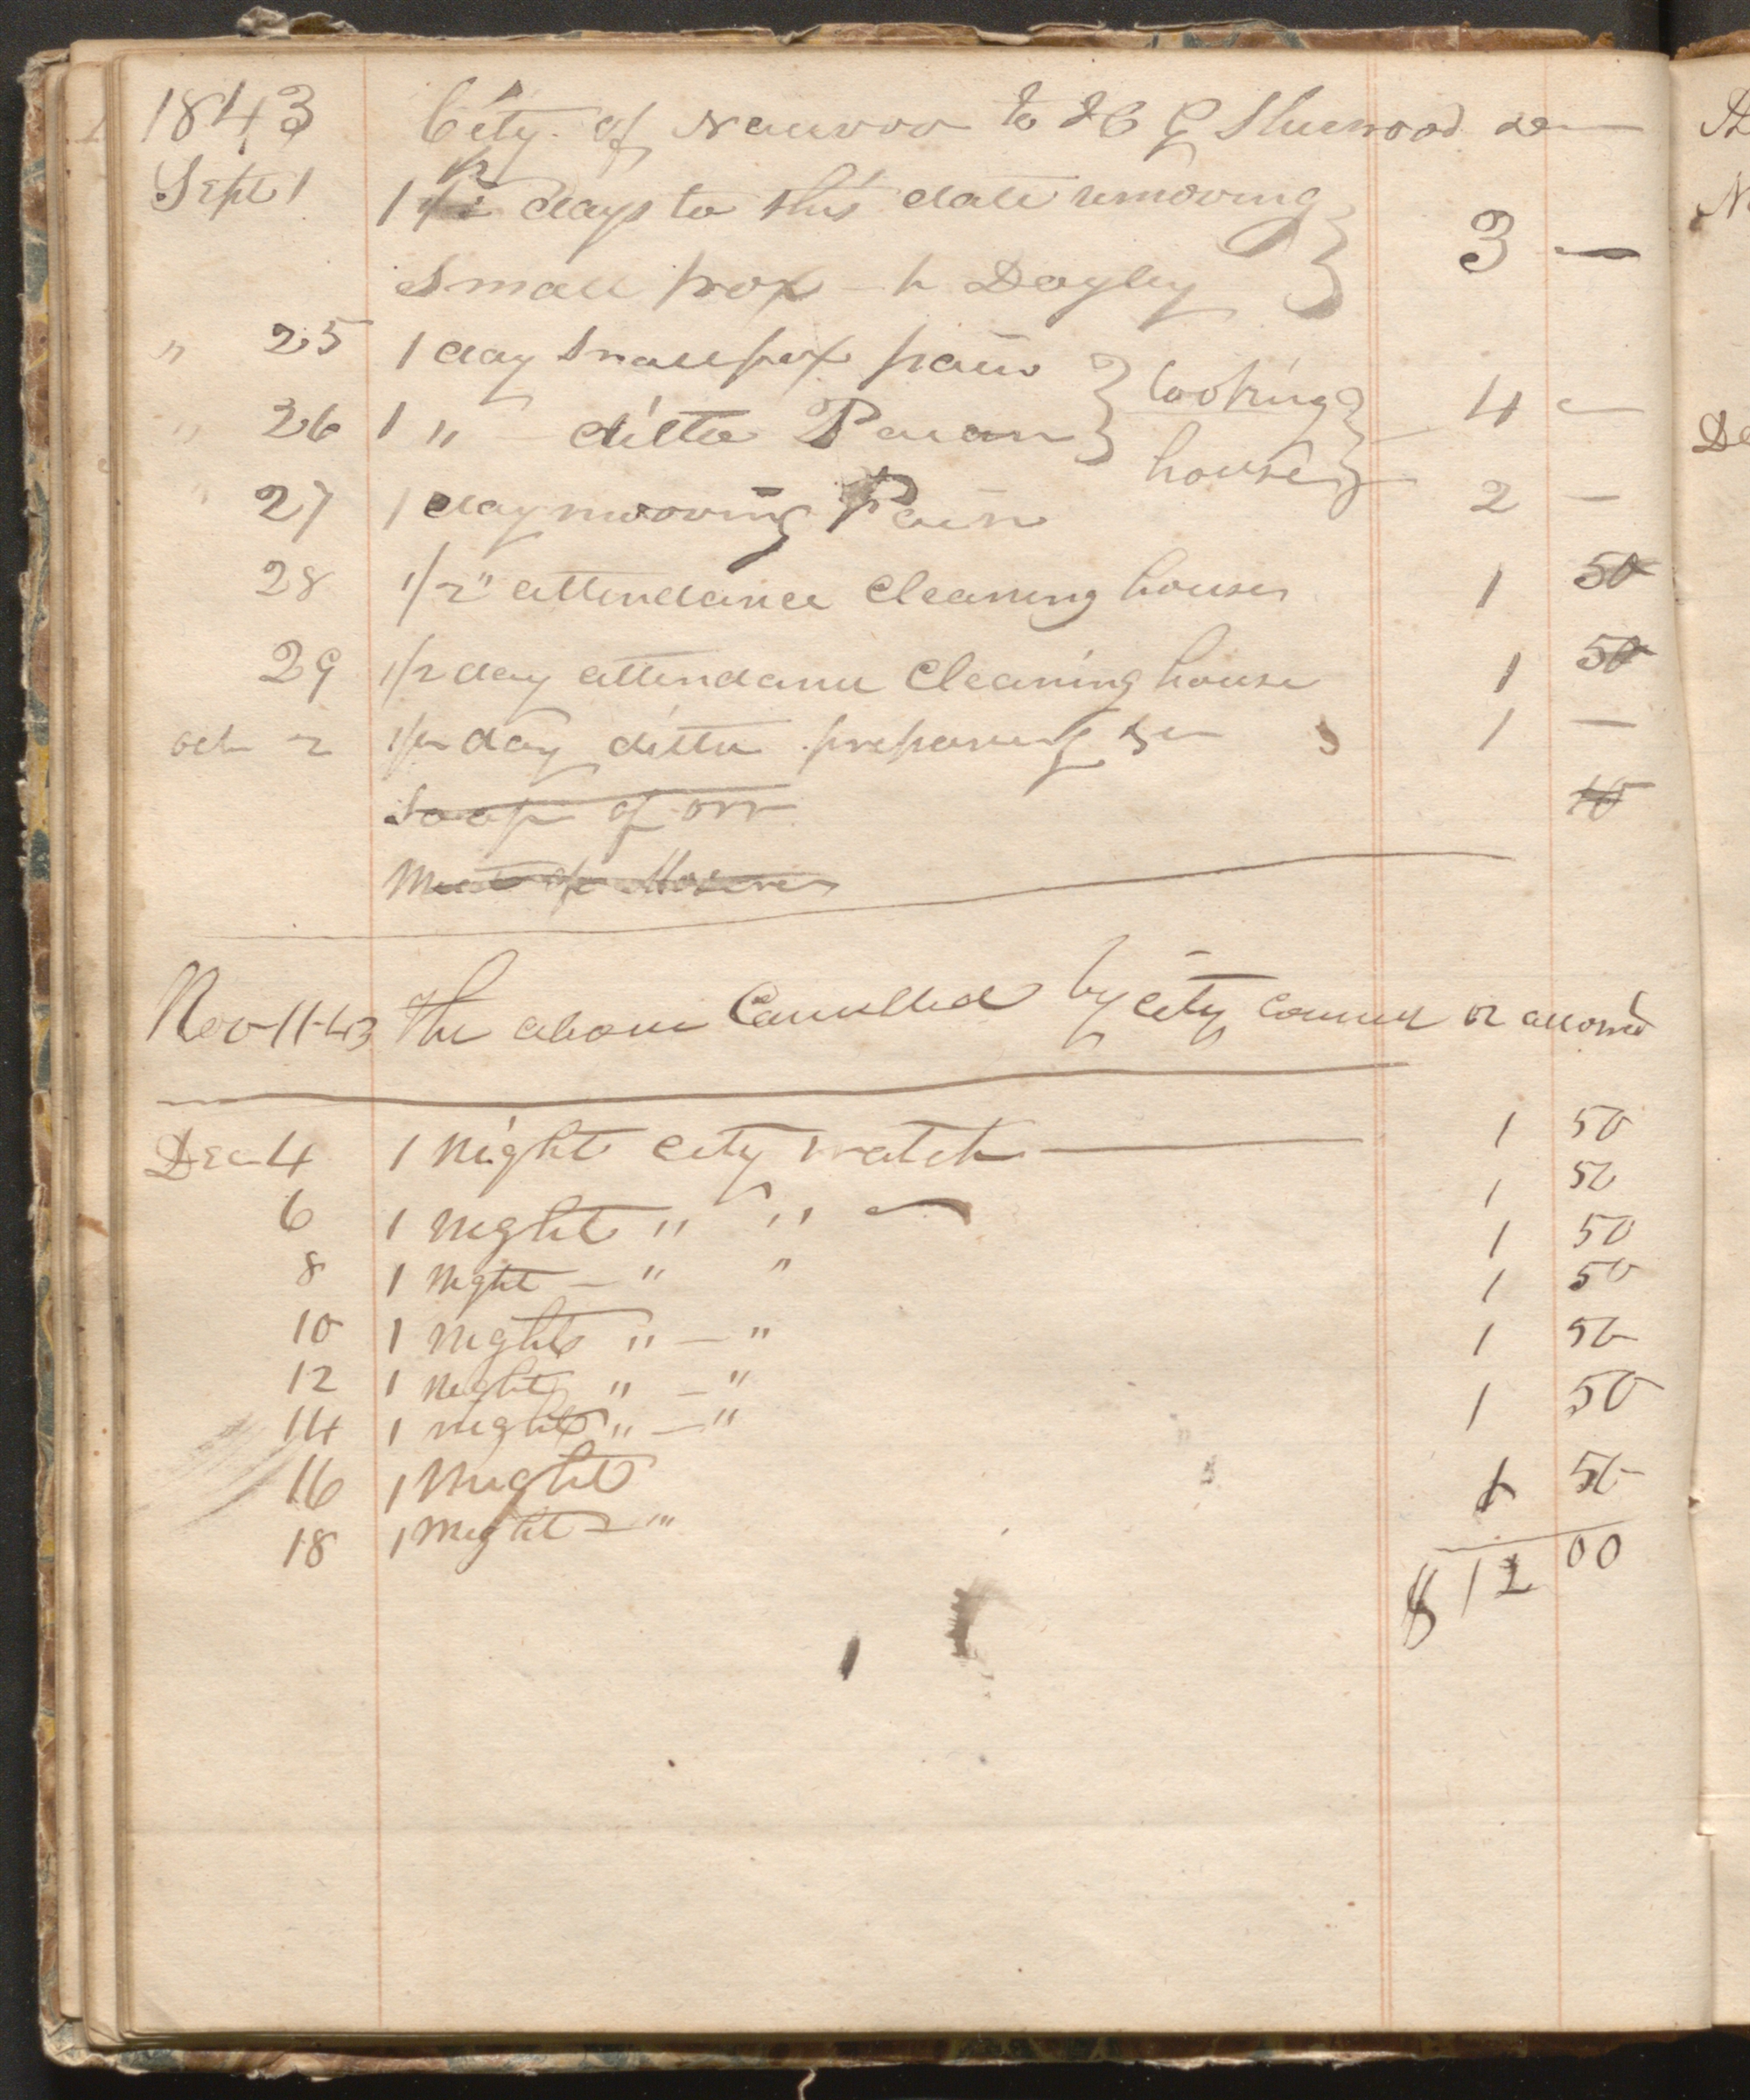 1843 City of Nauvoo to H G Sherwood Dr
Sept 1 1 1/2 days to this date removing
small pox – h Dayley } 3 —
" 25 1 day small pox pain
" 26 1 " ditto Pain } looking house } 4 —
" 27 1 day mooving Pain 2 —
28 1/2 " attendance Cleaning house 1 50
29 1/2 day attendance Cleaning house 1 50
Oct 2 1/2 day ditto preparing &c 1 —
Soap of orr 10
Nov 11-43 The above Cancelled by City Council or allowed
Dec 4 1 Night City watch — 1 50
6 1 Night " " — 1 50
8 1 Night – " " 1 50
10 1 Night " – " 1 50
12 1 Night " – " 1 50
14 1 Night " – " 1 50
16 1 Night 1 50
18 1 Night – "
$ 12 00